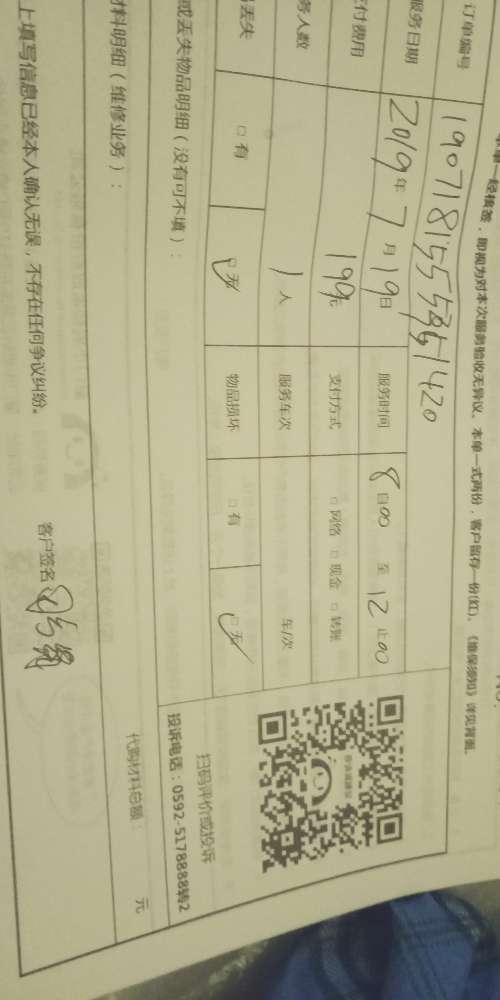 单一经核签，即视为对本次服务验收无异议。本单一式两份，客户留存一份(红)。《维保须知》详见背面。
订单编号
服务日期 2019年7月19日 服务时间 8自00 至 12止00
付费用 199元 支付方式 □网络 □现金 □转账
务人数 1人 服务车次 车/次
丢失 □有 □无 物品损坏 □有 □无
扫码评价或投诉
投诉电话：0592-5178888转2
或丢失物品明细（没有可不填）：
材料明细（维修业务）：
代购材料总额： 元
上填写信息已经本人确认无误，不存在任何争议纠纷。 客户签名